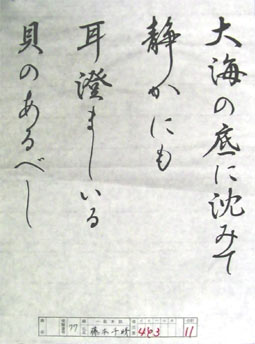 大海の底に沈みて
静かにも
耳澄ましいる
貝のあるべし
77
403
11